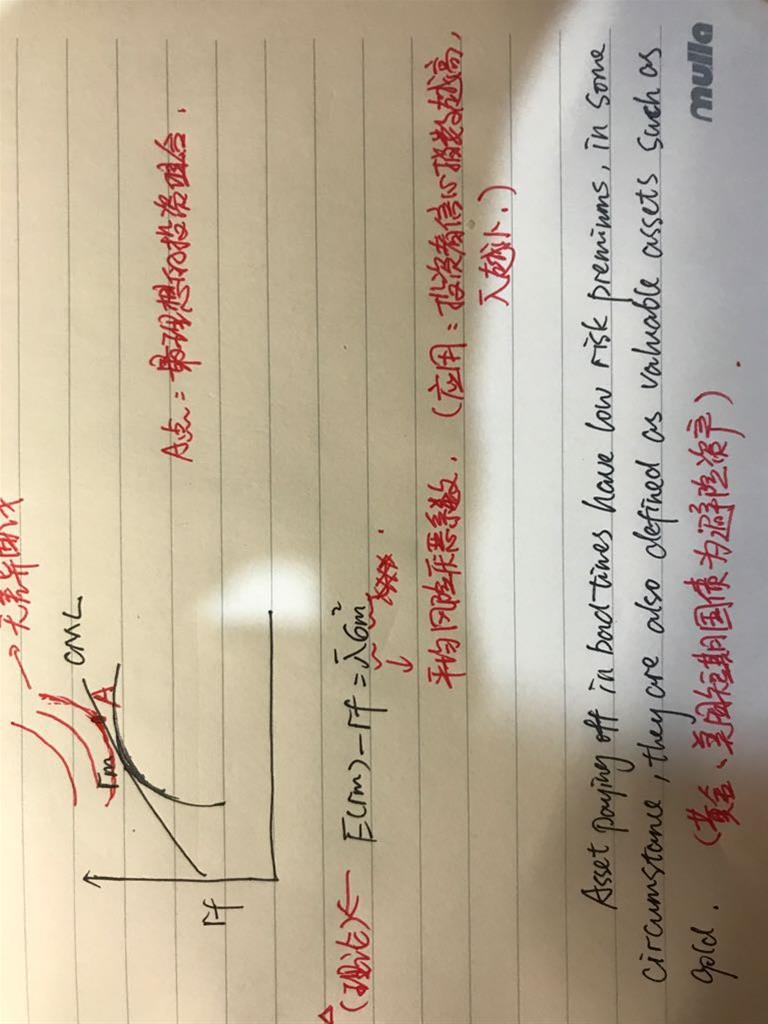 → 无差异曲线
CML
rm
A
A点 = 最理想的投资组合.
rf
(理论) ← E(rm) - rf = λ̄σm².
↓
平均风险厌恶系数. (应用: 投资者信心指数越高,
λ越小.)
Asset paying off in bad times have low risk premiums, in some
circumstance, they are also defined as valuable assets such as
gold. (黄金、美国短期国债为避险资产).
mulla